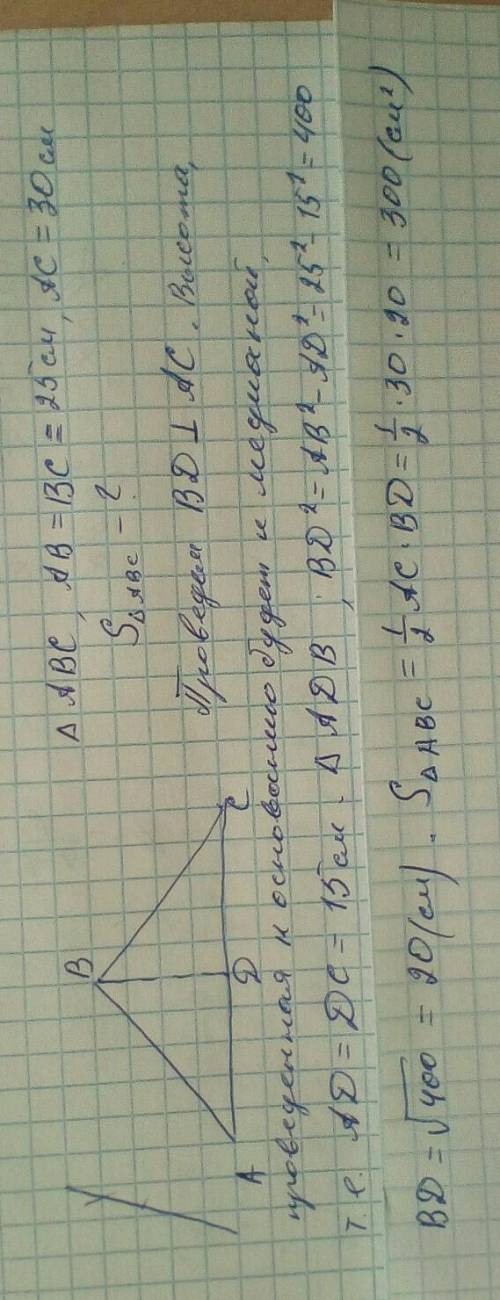 △ ABC, AB = BC = 25 см, AC = 30 см
S△ABC - ?
Проведем BD ⊥ AC. Высота,
B
A
D
C
проведенная к основанию будет и медианой,
т.е. AD = DC = 15 см. △ ADB, BD² = AB² - AD² = 25² - 15² = 400
BD = √400 = 20 (см). S△ABC = 1/2 AC · BD = 1/2 · 30 · 20 = 300 (см²)